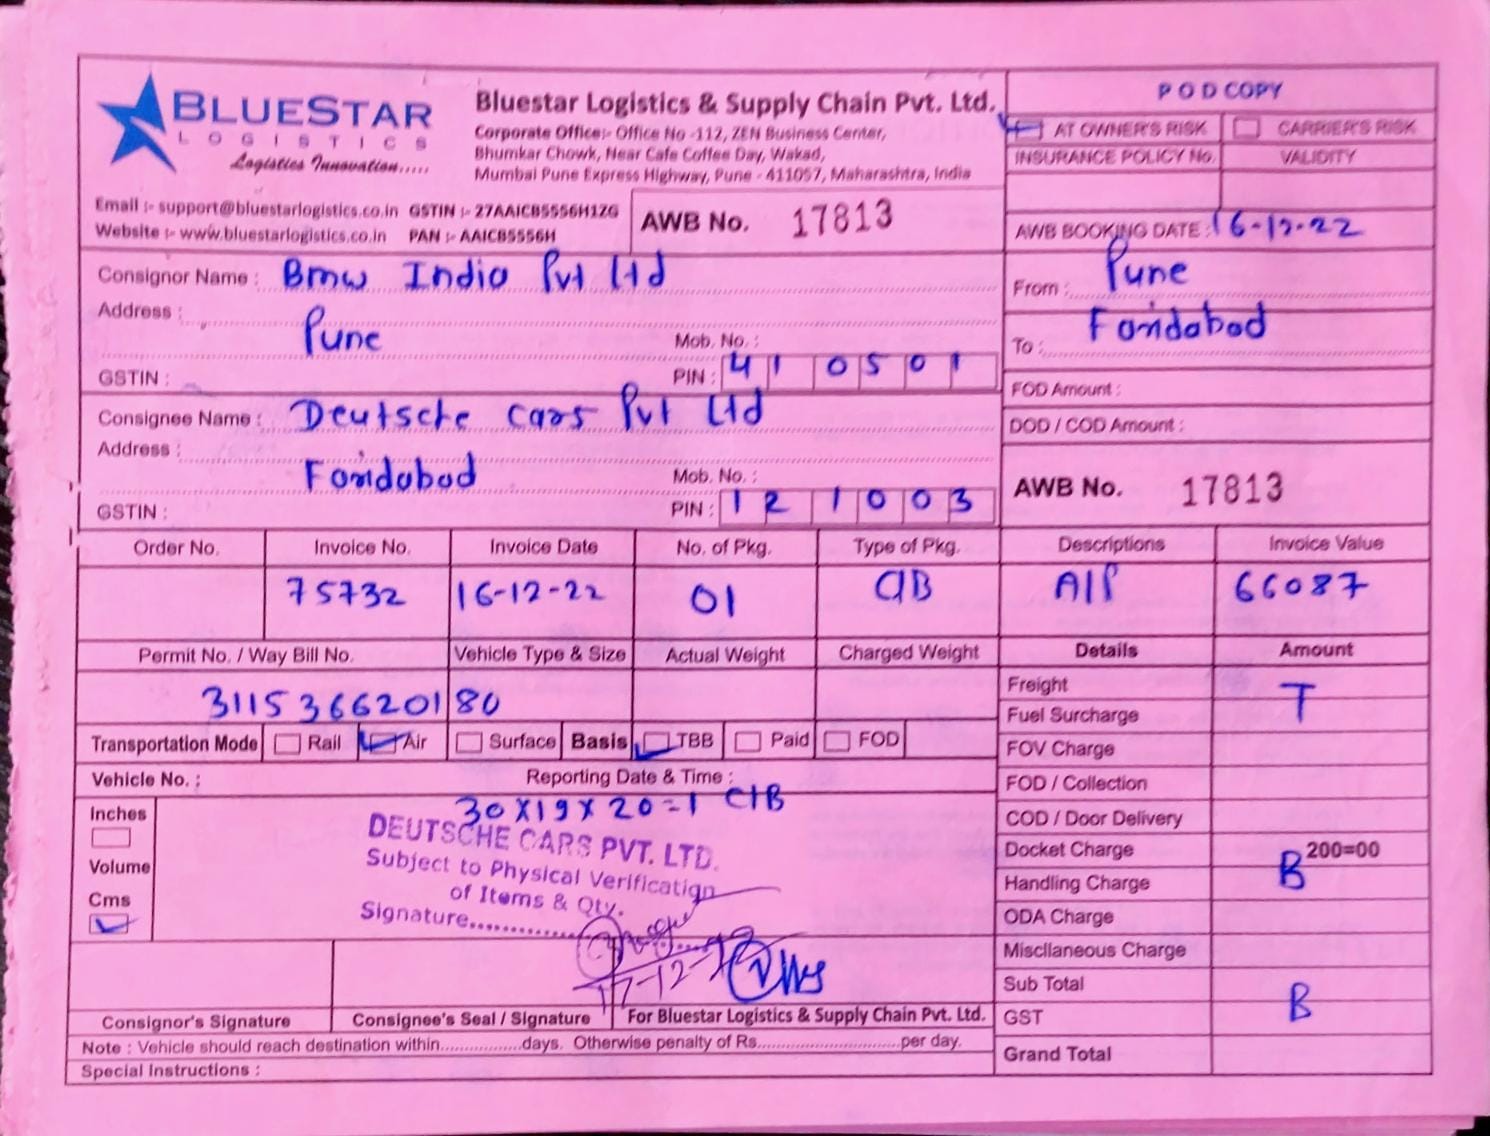 BLUESTAR
LOGISTICS
Logistics Innovation.....
Bluestar Logistics & Supply Chain Pvt. Ltd.
Corporate Office:- Office No -112, ZEN Business Center,
Bhumkar Chowk, Near Cafe Coffee Day, Wakad,
Mumbai Pune Express Highway, Pune - 411057, Maharashtra, India
POD COPY
AT OWNER'S RISK CARRIER'S RISK
INSURANCE POLICY No. VALIDITY
Email :- support@bluestarlogistics.co.in GSTIN :- 27AAICB5556H1ZG
Website :- www.bluestarlogistics.co.in PAN :- AAICB5556H
AWB No. 17813
AWB BOOKING DATE : 16-12-22
Consignor Name : Bmw India Pvt Ltd
Address :
Pune
Mob. No. :
GSTIN :
PIN : 410501
From : Pune
To : Faridabad
FOD Amount :
DOD / COD Amount :
Consignee Name : Deutsche Cars Pvt Ltd
Address :
Faridabad
Mob. No. :
GSTIN :
PIN : 121003
AWB No. 17813
Order No. Invoice No. Invoice Date No. of Pkg. Type of Pkg. Descriptions Invoice Value
75732 16-12-22 01 CIB AIP 66087
Permit No. / Way Bill No. Vehicle Type & Size Actual Weight Charged Weight Details Amount
311536620180
Freight T
Fuel Surcharge
Transportation Mode Rail Air Surface Basis TBB Paid FOD
FOV Charge
Vehicle No. : Reporting Date & Time :
FOD / Collection
Inches
30X19X20=1 CIB
COD / Door Delivery
DEUTSCHE CARS PVT. LTD.
Subject to Physical Verification
of Items & Qty.
Signature..............
Volume
Cms
Docket Charge 200=00
Handling Charge B
ODA Charge
Miscllaneous Charge
17-12-22
Sub Total
Consignor's Signature Consignee's Seal / Signature For Bluestar Logistics & Supply Chain Pvt. Ltd.
GST B
Note : Vehicle should reach destination within.................days. Otherwise penalty of Rs..............................per day.
Grand Total
Special Instructions :